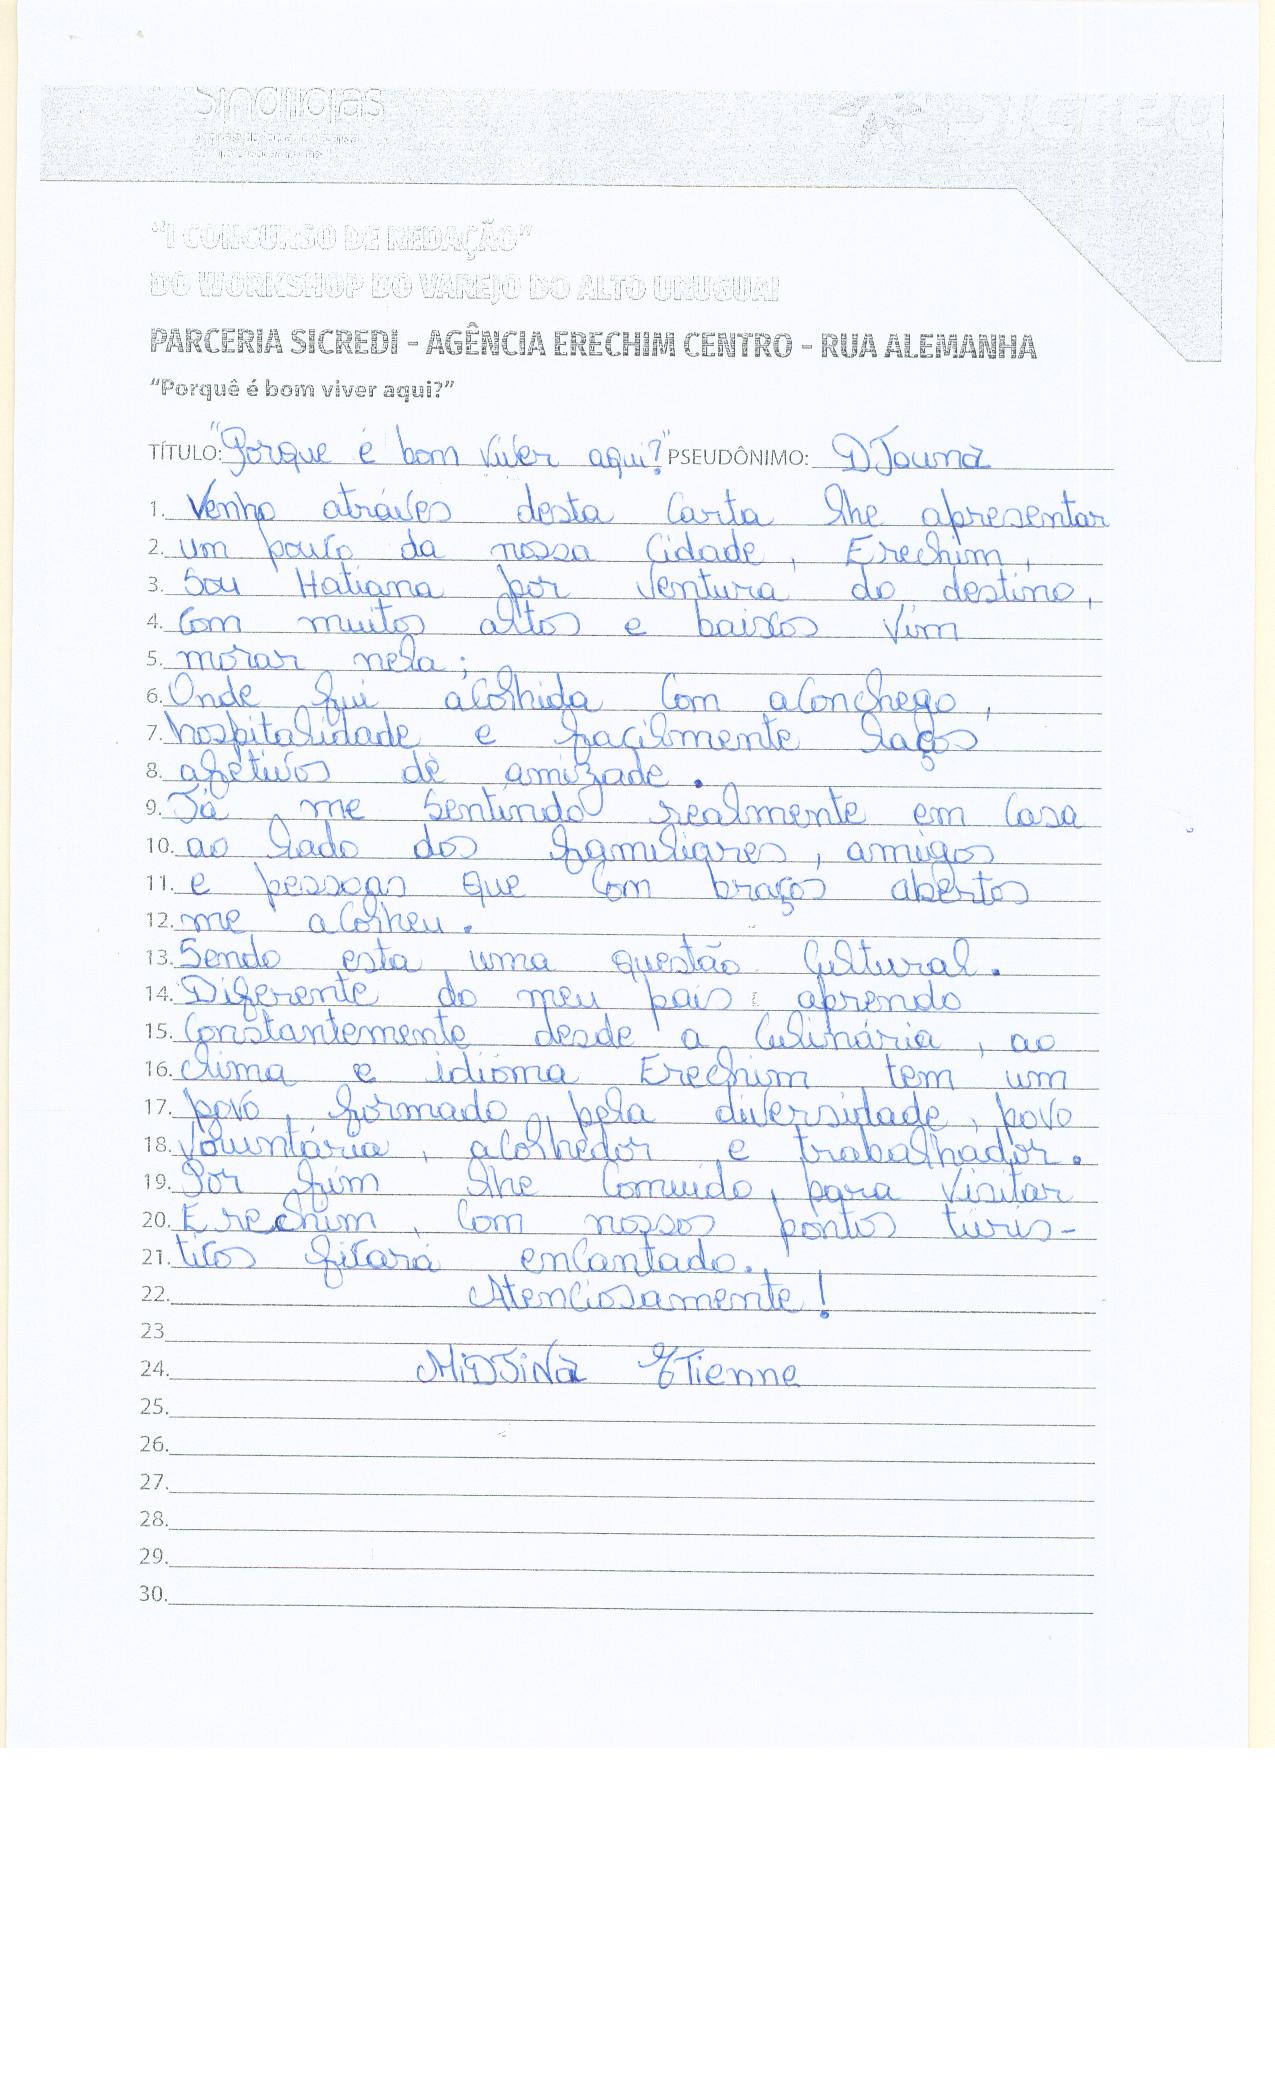 Sindilojas
"I CONCURSO DE REDAÇÃO"
DO WORKSHOP DO VAREJO DO ALTO URUGUAI
PARCERIA SICREDI - AGÊNCIA ERECHIM CENTRO - RUA ALEMANHA
"Porquê é bom viver aqui?"
TÍTULO: "Porque é bom viver aqui?" PSEUDÔNIMO: DJouna
1. Venho atráves desta carta lhe apresentar
2. um pouco da nossa cidade, Erechim,
3. Sou Hatiana por ventura do destino,
4. Com muitos altos e baixos vim
5. morar nela;
6. Onde fui acolhida com aconchego,
7. hospitalidade e facilmente laços
8. afetivos de amizade.
9. Já me sentindo realmente em casa
10. ao lado dos familiares, amigos
11. e pessoas que com braços abertos
12. me acolheu.
13. Sendo esta uma questão cultural.
14. Diferente do meu país aprendo
15. Constantemente desde a culinária, ao
16. clima e idioma Erechim tem um
17. povo formado pela diversidade, povo
18. Volumtária, acolhedor e trabalhador.
19. Por fim lhe comvido, para visitar
20. Erechim, com nossos pontos turis-
21. ticos ficará encantado.
22. Atenciosamente!
23
24. MiDJiNà ETienne
25.
26.
27.
28.
29.
30.